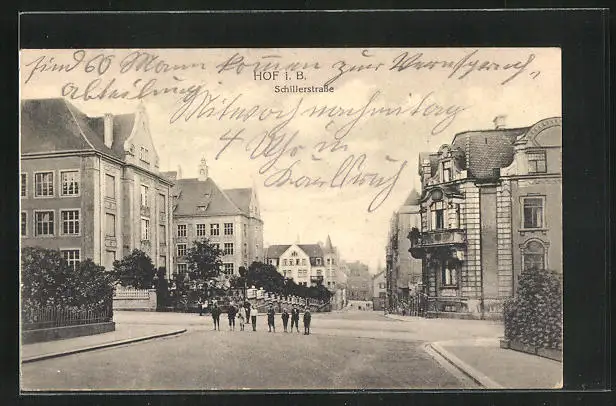 sind 60 Mann kommen zur
abteilung
HOF i. B.
Schillerstraße
Mittwoch nachmittag
4 Uhr in